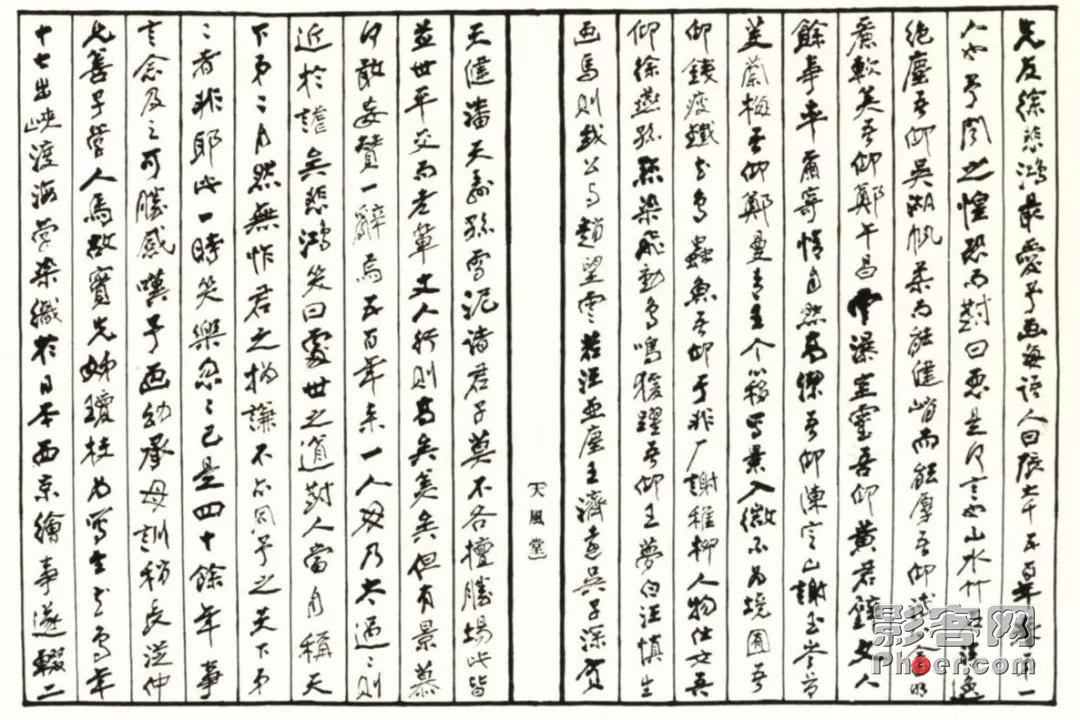 先友徐悲鴻最愛予画每語人曰張大千五百年來第一
人也予聞之惶恐而對曰惡是何言也山水竹石清逸
絕塵吾仰吳湖帆柔而能健峭而能厚吾仰溥心畬明
麗軟美吾仰鄭午昌雲瀑空靈吾仰黃君璧文人
餘事率爾寄情自然高潔吾仰陳定山謝玉岑荷
芰蘭梅吾仰鄭曼青王个簃寫景入微不為境囿吾
仰錢瘦鐵花鳥蟲魚吾仰于非厂謝稚柳人物仕女吾
仰徐燕孫點染飛動鳥鳴猨躍吾仰王夢白汪慎生
画馬則我公与趙望雲若汪亞塵王濟遠吳子深賀
天風堂
天健潘天壽孫雪泥諸君子莫不各擅勝場此皆
並世平交而老輩丈人行則高矣美矣但有景慕
何敢妄贊一辭焉五百年來一人毋乃太過過則
近於謔矣悲鴻笑曰處世之道對人當自稱天
下第二自然無怍君之撝謙不亦同予之天下第
二者非耶此一時笑樂忽忽已是四十餘年事
言念及之可勝感嘆予画幼承母訓稍長從仲
兄善子學人馬故實先姊瓊枝為寫生花鳥年
十七出峽渡海學染織於日本西京繪事遂輟二
影客网
Phoer.com